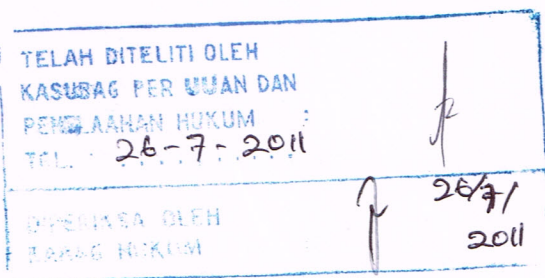 TELAH DITELITI OLEH
KASUBAG PER UUAN DAN
PENELAAHAN HUKUM :
TGL. : 26-7-2011
DIPERIKSA OLEH
KABAG HUKUM
26/7/
2011